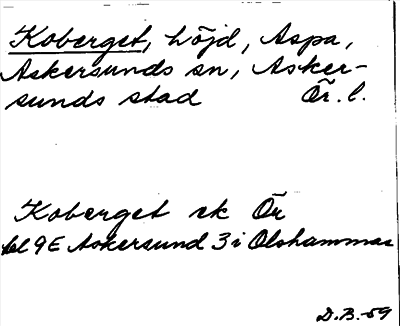 Koberget, höjd, Aspa,
Askersunds sn, Asker-
sunds stad Ör. l.
Koberget ek Ör
bl 9E Askersund 3i Olshammar
D.B.-59